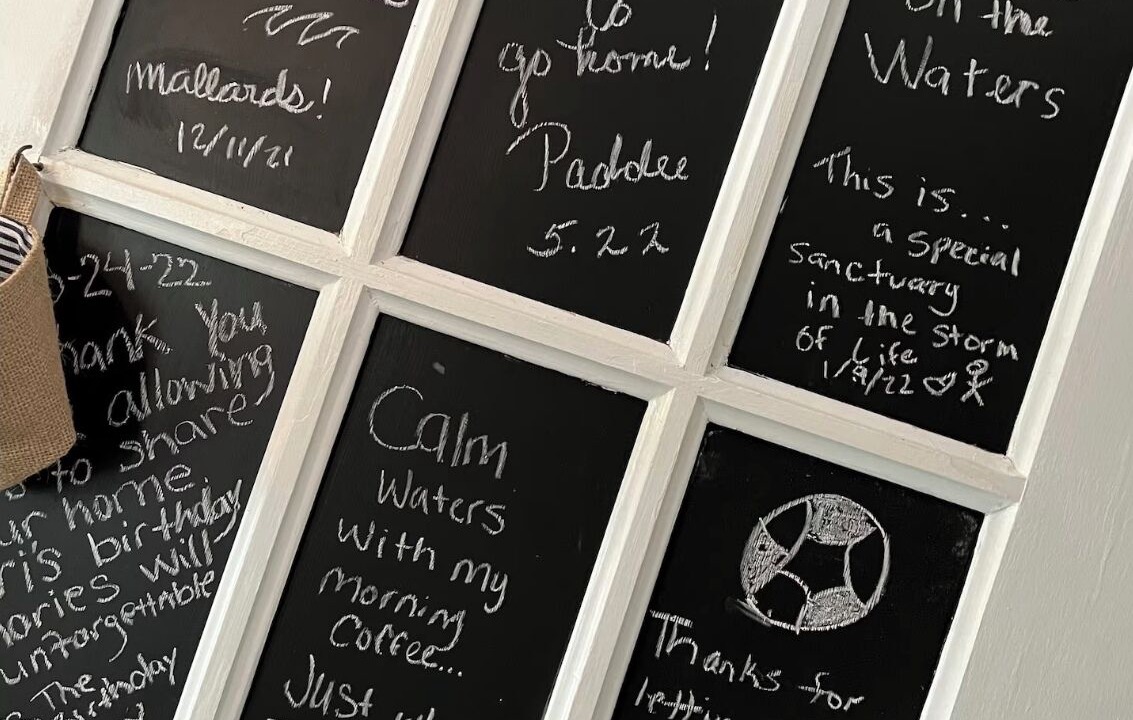 mallards!
12/11/21
to
go home!
Paddee
5.22
on the
Waters
This is...
a special
Sanctuary
in the storm
of Life
1/9/22
-24-22
hank you
allowing
to share
ur home
ri's birthday
ories will
unforgettable
The
birthday
Calm
Waters
With my
morning
Coffee...
Just
Thanks for